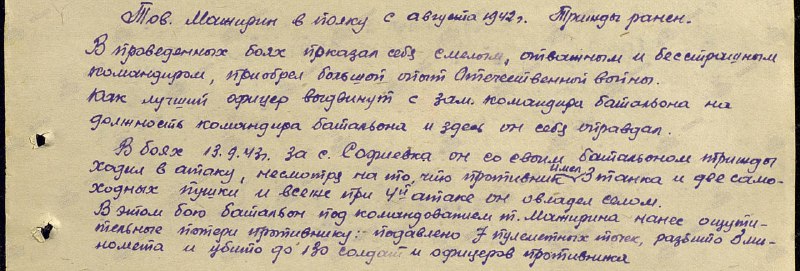 Тов. Мажирин в полку с августа 1942 г. Трижды ранен.
В проведенных боях показал себя смелым, отважным и бесстрашным
командиром, приобрел большой опыт Отечественной войны.
Как лучший офицер выдвинут с зам. командира батальона на
должность командира батальона и здесь он себя оправдал.
В боях 13.9.43г. за с. Софиевка он со своим батальоном трижды
ходил в атаку, несмотря на то, что противник имел 3 танка и две само-
ходных пушки и всеже при 4й атаке он овладел селом.
В этом бою батальон под командованием т. Мажирина нанес ощути-
тельные потери противнику: подавлено 7 пулеметных точек, разбито 3 ми-
номета и убито до 130 солдат и офицеров противника